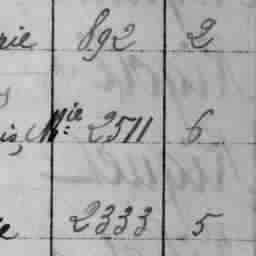 rie 892 2
is, Mie 2511 6
e 2333 5